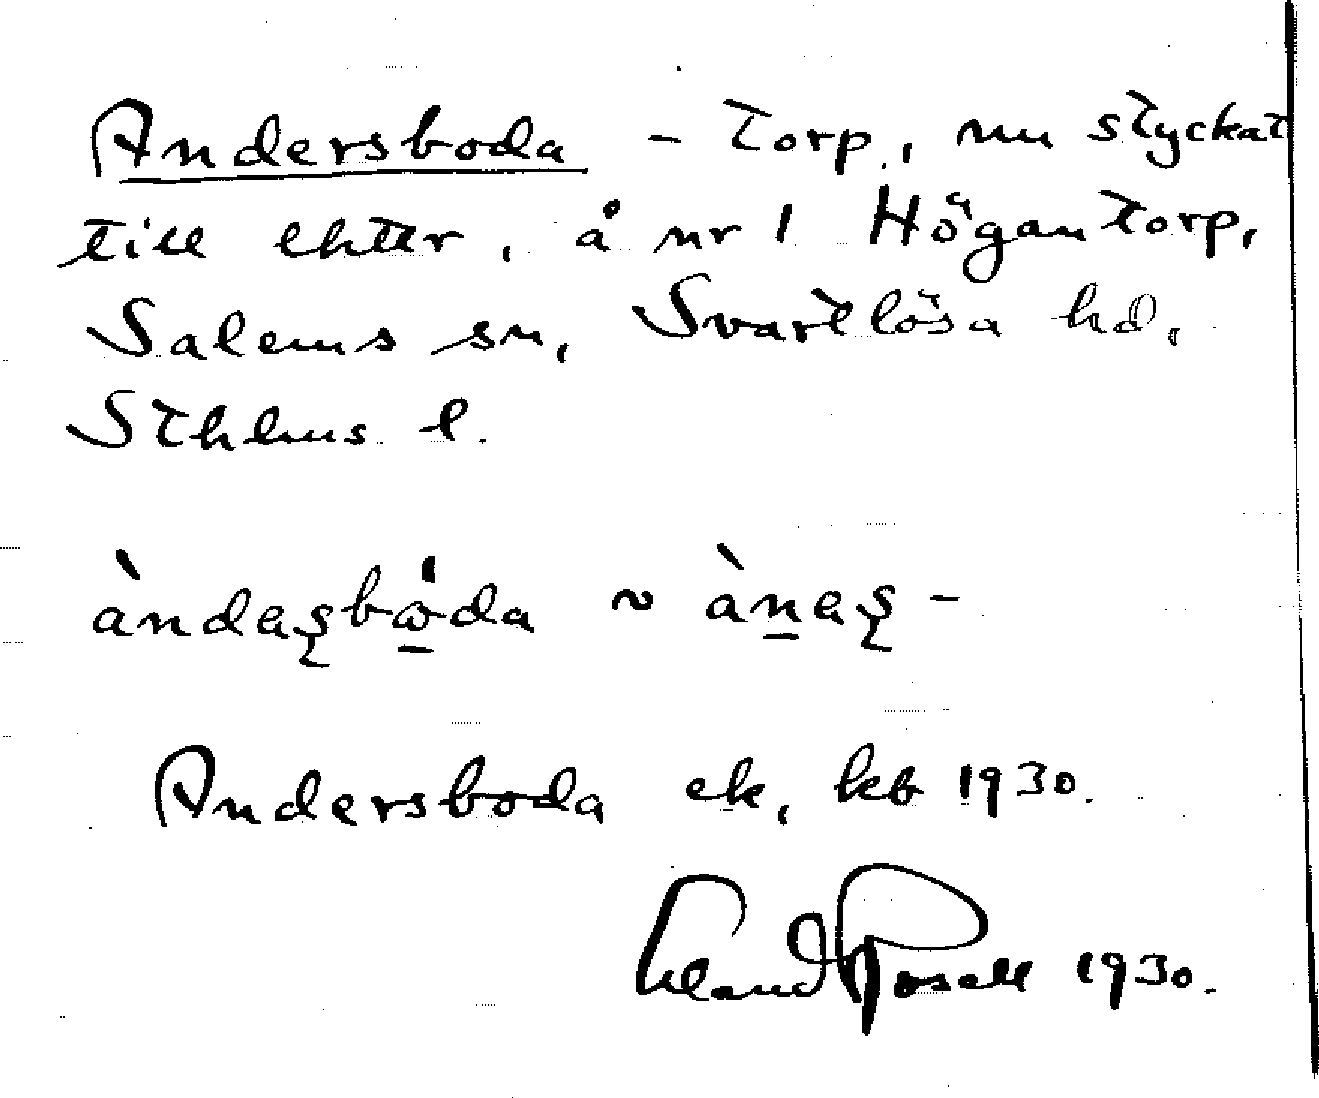 Andersboda - torp, nu styckat
till lhtr, å nr 1 Högantorp,
Salems sn, Svartlösa hd,
Sthlms l.
àndaşbω̲̇da ~ àn̲aş-
Andersboda ek, kb 1930.
Erland Rosell 1930.